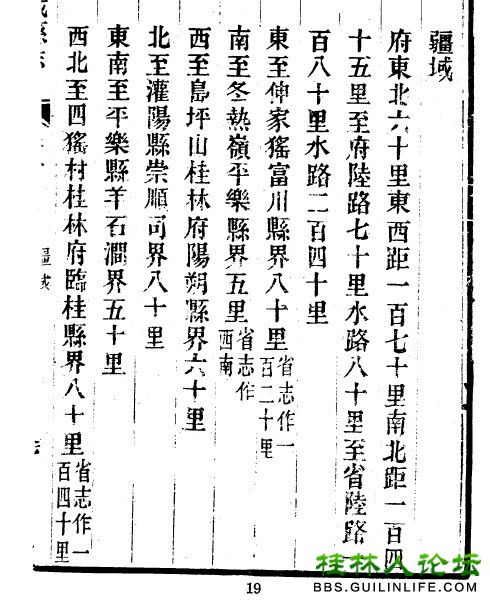 疆域
府東北六十里東西距一百七十里南北距一百四
十五里至府陸路七十里水路八十里至省陸路一
百八十里水路二百四十里
東至伸家猺富川縣界八十里省志作一百二十里
南至冬熱嶺平樂縣界五里省志作西南
西至島坪山桂林府陽朔縣界六十里
北至灌陽縣崇順司界八十里
東南至平樂縣羊石澗界五十里
西北至四猺村桂林府臨桂縣界八十里省志作一百四十里
疆域
19
桂林人论坛
BBS.GUILINLIFE.COM